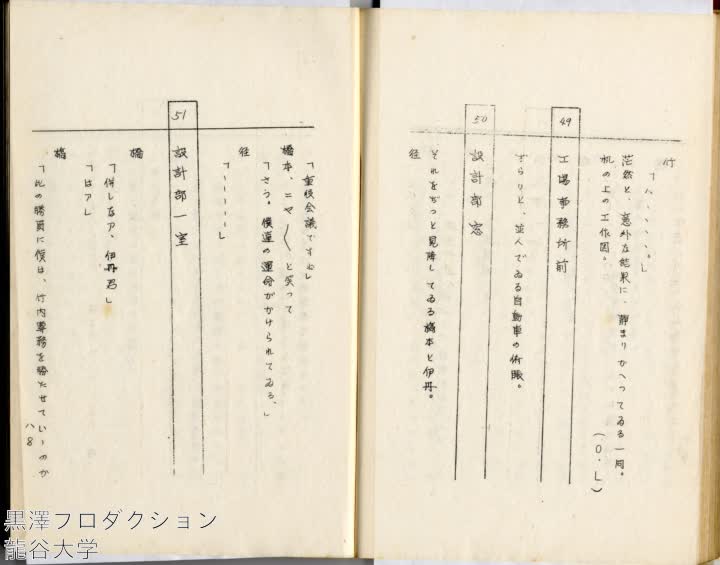 竹
「ハ、、、、、。」
茫然と、意外な結果に、静まりかへつてゐる一同。
机の上の工作図。
(O・L)
49 工場事務所前
ずらりと、並んでゐる自動車の俯瞰。
50 設計部窓
それをぢつと見降してゐる橋本と伊丹。
「重役会議ですね」
橋本、ニヤ〱と笑つて
「さう。僕達の運命がかけられてゐる、」
「――――――」
51 設計部一室
橋
「併しなア、伊丹君」
「はア」
橋
「此の勝負に僕は、竹内専務を勝たせていゝのか
八8
黒澤プロダクション
龍谷大学